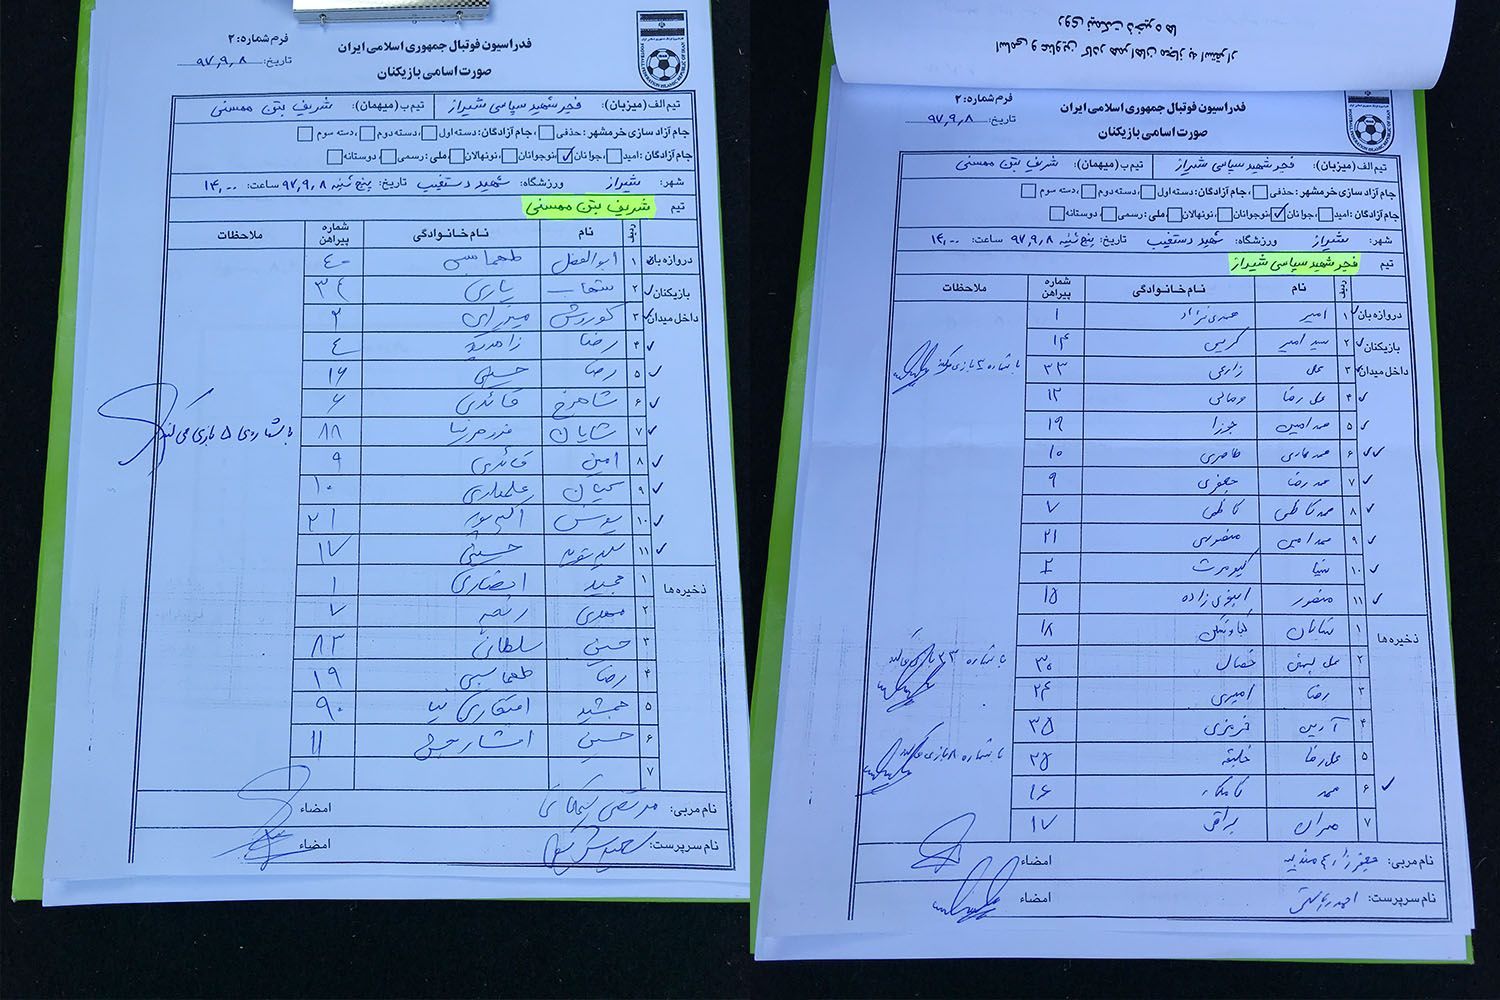 فرم شماره: ۲
فدراسیون فوتبال جمهوری اسلامی ایران
تاریخ: ۹۷٫۹٫۸
صورت اسامی بازیکنان
تیم الف (میزبان): فجر شهید سپاسی شیراز تیم ب (میهمان): شریف بتن ممسنی
جام آزاد سازی خرمشهر: حذفی ، جام آزادگان: دسته اول ، دسته دوم ، دسته سوم
جام آزادگان: امید ، جوانان ، نوجوانان ، نونهالان ، ملی: رسمی ، دوستانه
شهر: شیراز ورزشگاه: شهید دستغیب تاریخ: پنج شنبه ۹۷٫۹٫۸ ساعت: ۱۴٫۰۰
تیم شریف بتن ممسنی
ردیف نام نام خانوادگی شماره پیراهن ملاحظات
دروازه بان ۱ ابوالفضل طهماسبی ۴۰
بازیکنان ۲ یاری ۳۴
داخل میدان ۳ کوروش ۲
۴ رضا ۴
۵ رضا حسینی ۱۶
۶ شاهرخ قائدی ۶
۷ شایان ۸۸
با شماره ی ۵ بازی می کند
۸ امین قائدی ۹
۹ کیان ۱۰
۱۰ یونس اکبرپور ۲۱
۱۱ حسینی ۱۷
ذخیره ها ۱ مجید انصاری ۱
۲ مهدی ۷
۳ حسین سلطانی ۸۳
۴ رضا طهماسبی ۱۹
۵ جمشید ۹۰
۶ حسین ۱۱
۷
نام مربی: مرتضی امضاء
نام سرپرست: امضاء
اسامی و عناوین کادر همراهان مجاز به استقرار
روی نیمکت ذخیره ها
فرم شماره: ۲
فدراسیون فوتبال جمهوری اسلامی ایران
تاریخ: ۹۷٫۹٫۸
صورت اسامی بازیکنان
تیم الف (میزبان): فجر شهید سپاسی شیراز تیم ب (میهمان): شریف بتن ممسنی
جام آزاد سازی خرمشهر: حذفی ، جام آزادگان: دسته اول ، دسته دوم ، دسته سوم
جام آزادگان: امید ، جوانان ، نوجوانان ، نونهالان ، ملی: رسمی ، دوستانه
شهر: شیراز ورزشگاه: شهید دستغیب تاریخ: پنج شنبه ۹۷٫۹٫۸ ساعت: ۱۴٫۰۰
تیم فجر شهید سپاسی شیراز
ردیف نام نام خانوادگی شماره پیراهن ملاحظات
دروازه بان ۱ امیر مهدی نژاد ۱
بازیکنان ۲ سید امیر کریمی ۱۴
داخل میدان ۳ علی زارعی ۳۳ با شماره ۴ بازی میکند
۴ علی رضا وصالی ۱۲
۵ محمد امین جوزا ۱۹
۶ طاهری ۱۰
۷ محمد رضا جعفری ۹
۸ محمد کاظم کاظمی ۷
۹ محمد امین منصوری ۲۱
۱۰ کیومرث ۲
۱۱ منصور ۱۵
ذخیره ها ۱ شایان ۱۸
۲ خصال ۳۰ با شماره ۲۳ بازی میکند
۳ رضا امیری ۲۴
۴ آرین ۳۵
۵ علی رضا خلیفه ۲۵ با شماره ۸ بازی میکند
۶ محمد کامکار ۱۶
۷ مهران براقی ۱۷
نام مربی: جعفر امضاء
نام سرپرست: احمد امضاء